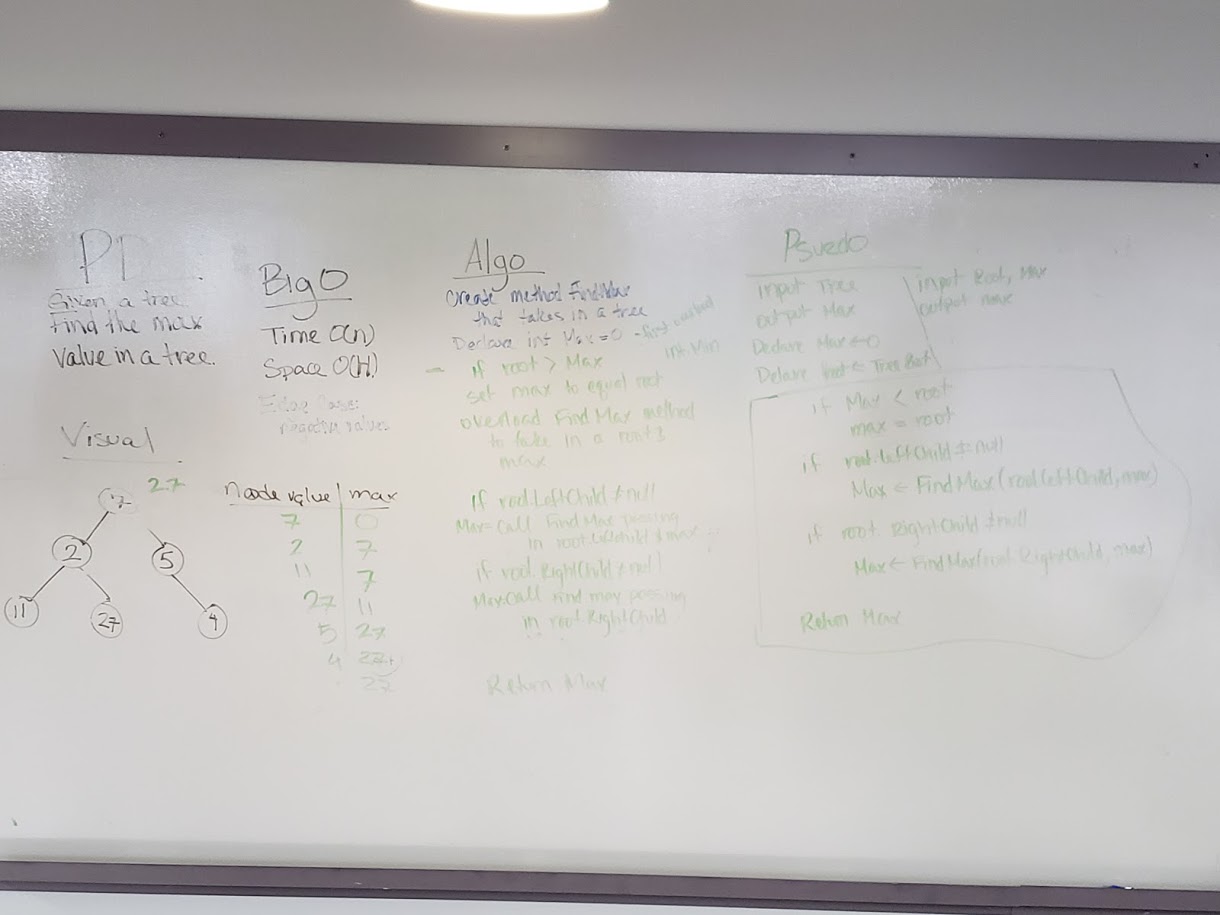 PD
Given a tree
Find the max
Value in a tree.
Visual
27
7
2
5
11
27
4
Big O
Time O(n)
Space O(H)
Edge Case:
negative values
node value | max
7 0
2 7
11 7
27 11
5 27
4 27
27
Algo
Create method FindMax
that takes in a tree
Declare int Max = 0 -
int.Min
if root > Max
set max to equal root
overload Find Max method
to take in a root &
max
If root.LeftChild ≠ null
Max = Call Find Max passing
in root.LeftChild & max
if root.RightChild ≠ null
Max Call find max passing
in root.RightChild
Return Max
Psuedo
input Tree
output Max
Declare Max ← 0
Delare Root ← Tree Root
input Root, Max
output max
if Max < root
max = root
if root.leftChild ≠ null
Max ← FindMax (root.leftChild, max)
if root. RightChild ≠ null
Max ← FindMax(root.RightChild, max)
Return Max